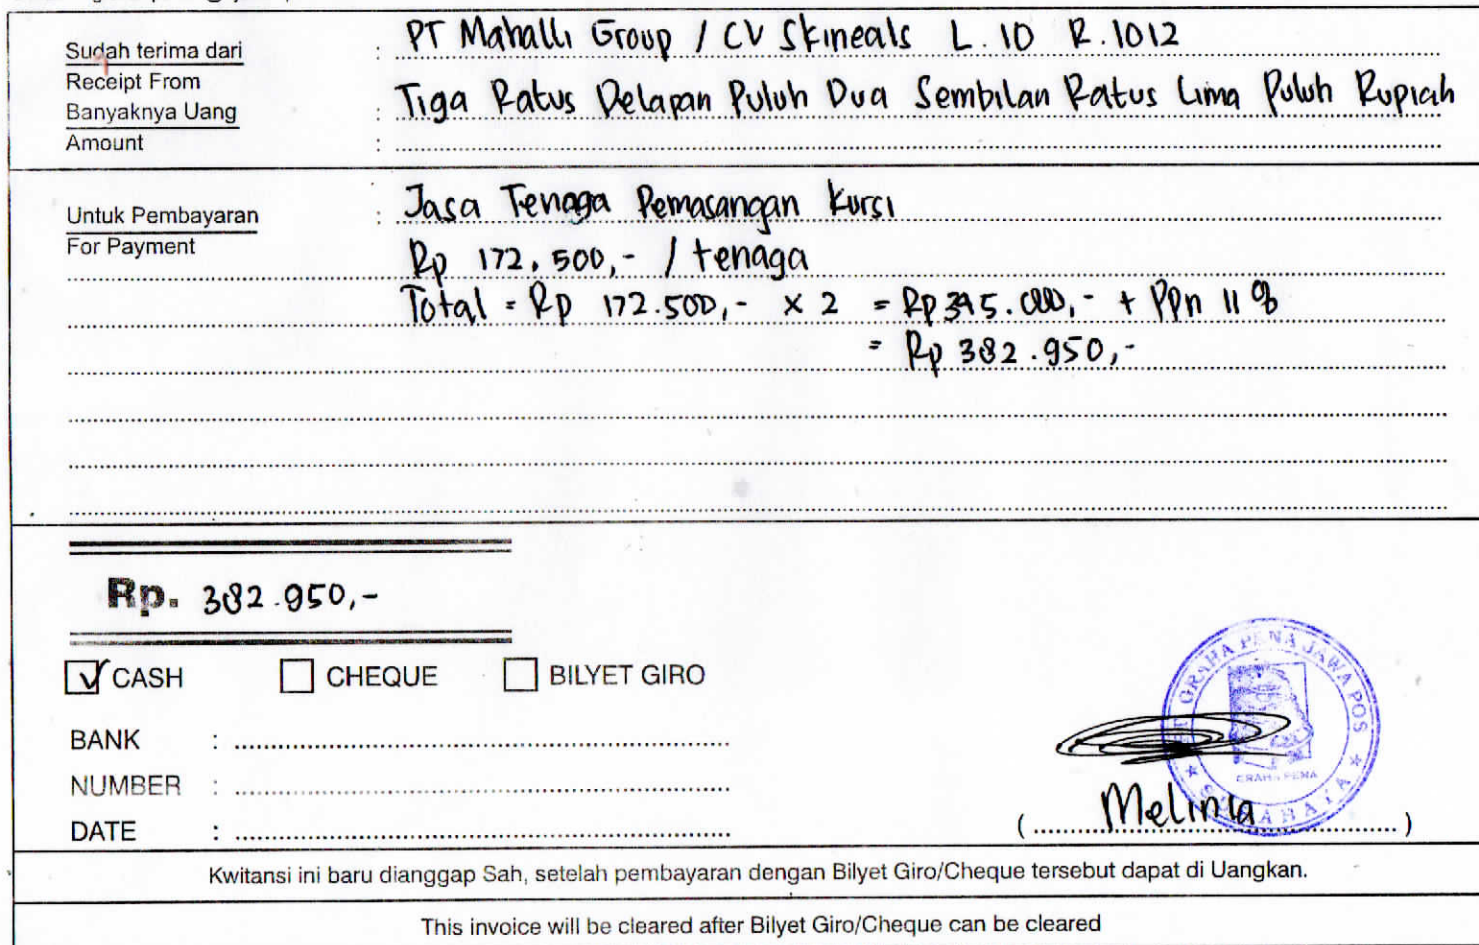 Sudah terima dari : PT Mahalli Group / CV Skineals L.10 R.1012
Receipt From
Banyaknya Uang : Tiga Ratus Delapan Puluh Dua Sembilan Ratus Lima Puluh Rupiah
Amount :
Untuk Pembayaran : Jasa Tenaga Pemasangan Kursi
For Payment
Rp 172.500,- / tenaga
Total = Rp 172.500,- x 2 = Rp 345.000,- + Ppn 11 %
= Rp 382.950,-
Rp. 382.950,-
CASH CHEQUE BILYET GIRO
BANK :
NUMBER :
DATE :
GRAHA PENA JAWA POS
GRAHA PENA
SURABAYA
( Melinia )
Kwitansi ini baru dianggap Sah, setelah pembayaran dengan Bilyet Giro/Cheque tersebut dapat di Uangkan.
This invoice will be cleared after Bilyet Giro/Cheque can be cleared